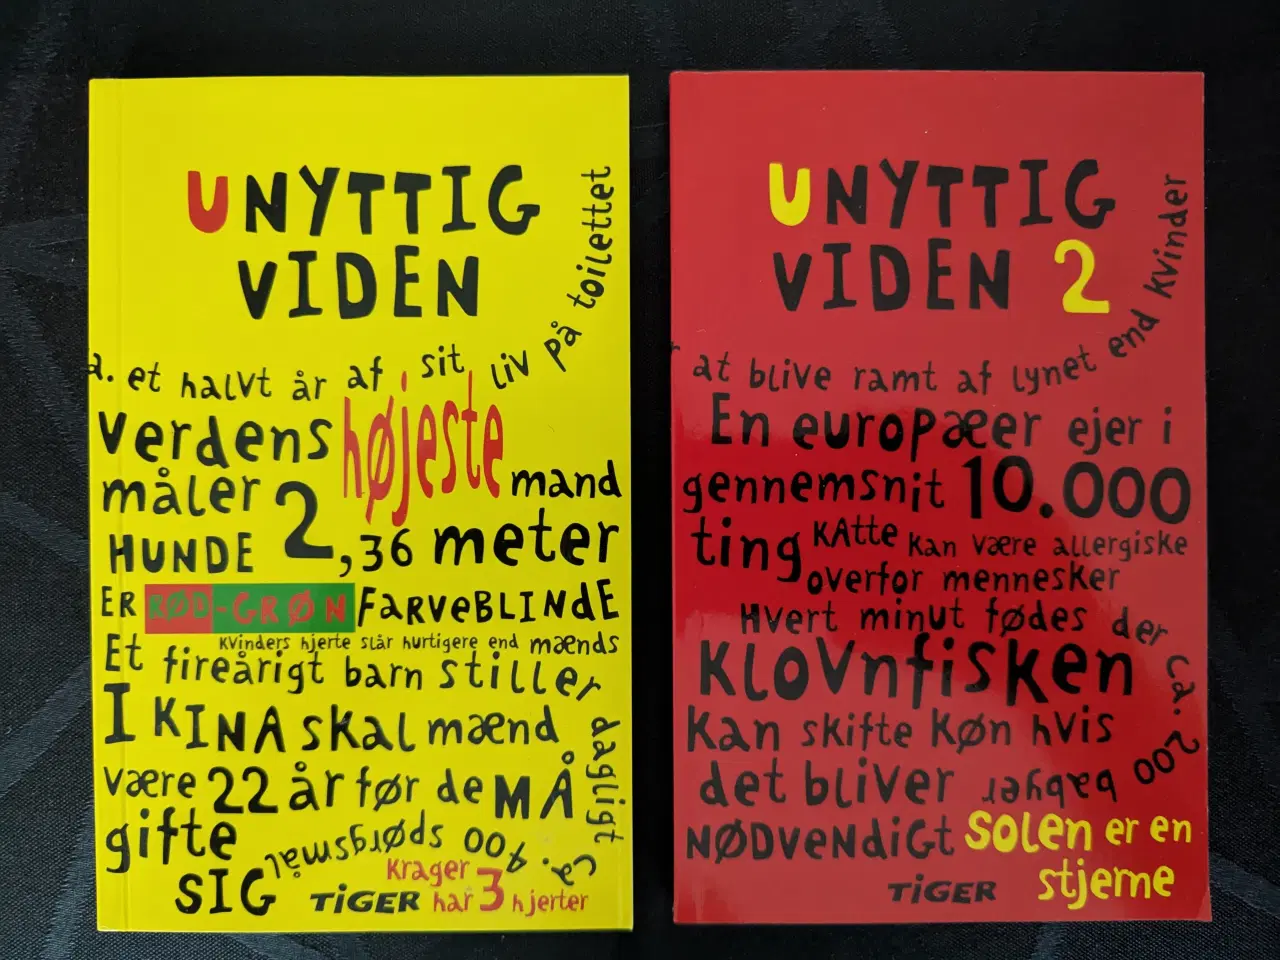 UNYTTIG
VIDEN
a. et halvt år af sit liv på toilettet
verdens højeste mand
måler 2,36 meter
HUNDE
ER RØD-GRØN FARVEBLINDE
Kvinders hjerte slår hurtigere end mænds
Et fireårigt barn stiller dagligt ca. 400 spørgsmål
I KINA skal mænd
være 22 år før de MÅ
gifte
SIG
Krager
har 3 hjerter
TiGER
UNYTTIG
VIDEN 2
at blive ramt af lynet end kvinder
En europæer ejer i
gennemsnit 10.000
ting
Katte kan være allergiske
overfor mennesker
Hvert minut fødes der ca. 200 babyer
Klovnfisken
kan skifte køn hvis
det bliver
NØDVENDIGT
SOLEN er en
stjerne
TiGER